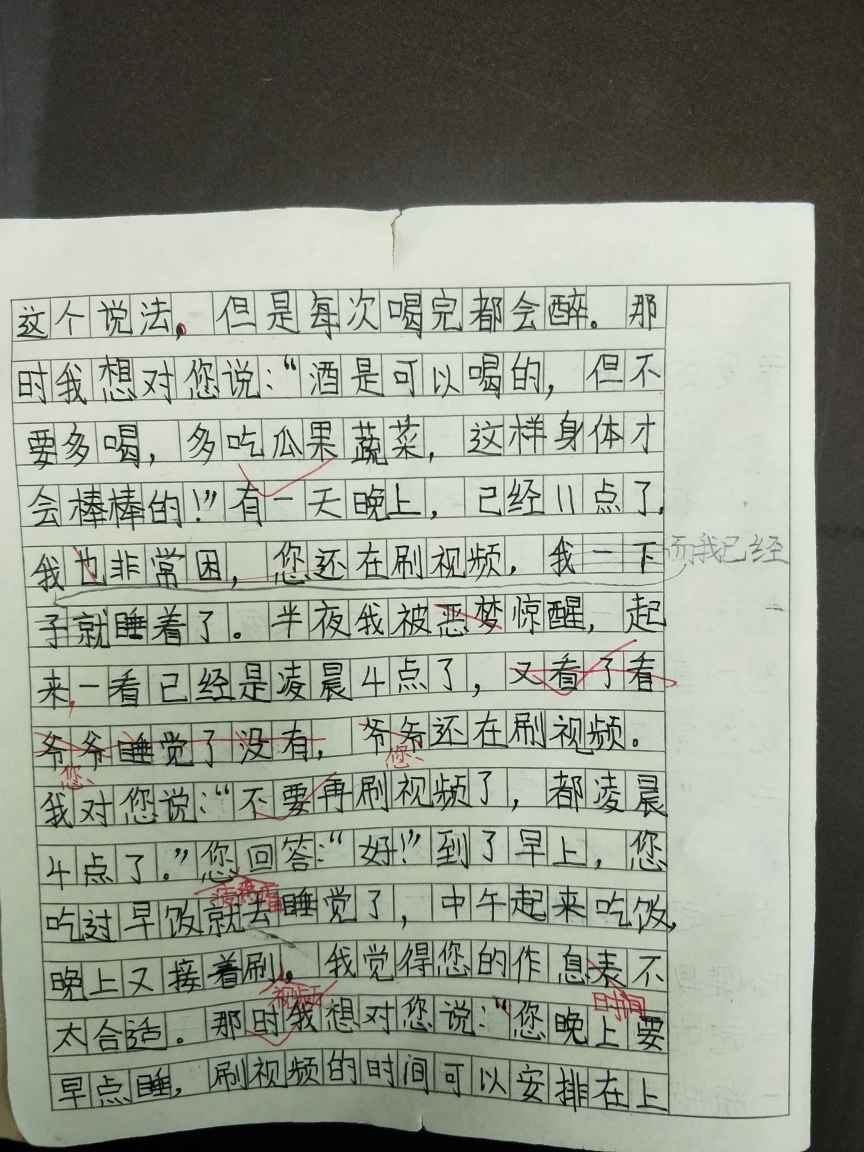 这个说法，但是每次喝完都会醉。那
时我想对您说：“酒是可以喝的，但不
要多喝，多吃瓜果蔬菜，这样身体才
会棒棒的！”有一天晚上，已经11点了，
我也非常困，您还在刷视频，我一下
而我已经
子就睡着了。半夜我被恶梦惊醒，起
来，一看已经是凌晨4点了，又看了看
爷爷睡觉了没有，爷爷还在刷视频。
您
您
我对您说：“不要再刷视频了，都凌晨
4点了。”您回答：“好！”到了早上，您
吃过早饭就去睡觉了，中午起来吃饭，
晚上又接着刷。我觉得您的作息表不
视频
时间
太合适。那时我想对您说：“您晚上要
早点睡，刷视频的时间可以安排在上